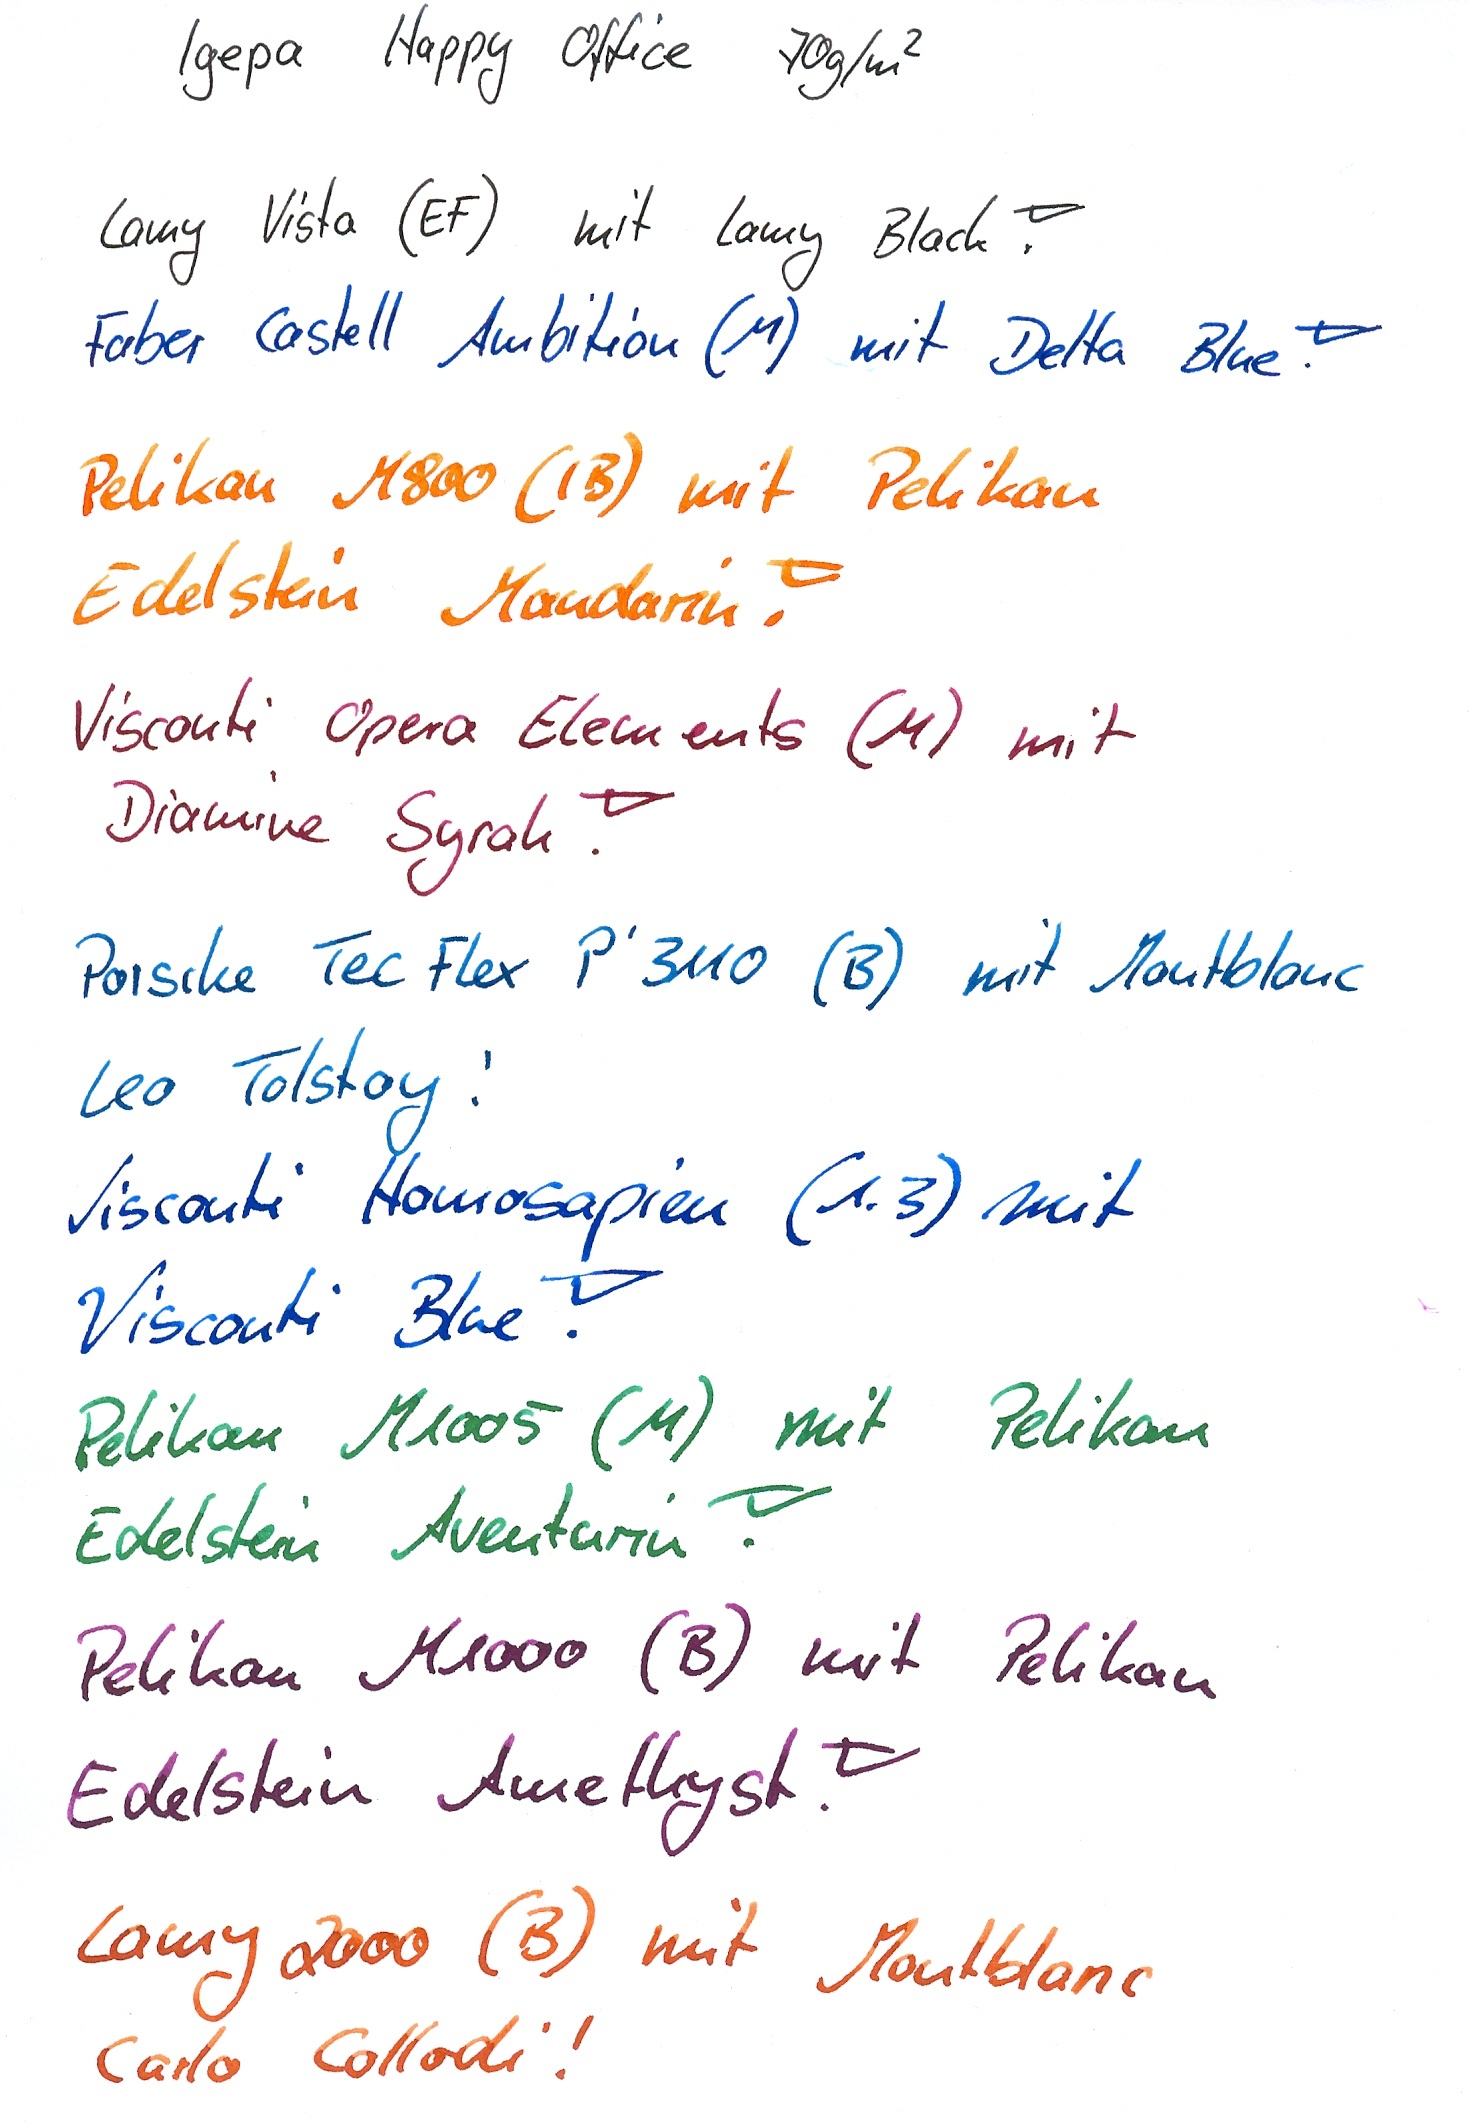 Igepa Happy Office 70g/m²
Lamy Vista (EF) mit Lamy Black!
Faber Castell Ambition (M) mit Delta Blue!
Pelikan M800 (IB) mit Pelikan
Edelstein Mandarin!
Visconti Opera Elements (M) mit
Diamine Syrah!
Porsche Tec Flex P'3110 (B) mit Montblanc
Leo Tolstoy!
Visconti Homosapien (1.3) mit
Visconti Blue!
Pelikan M1005 (M) mit Pelikan
Edelstein Aventurin!
Pelikan M1000 (B) mit Pelikan
Edelstein Amethyst!
Lamy 2000 (B) mit Montblanc
Carlo Collodi!